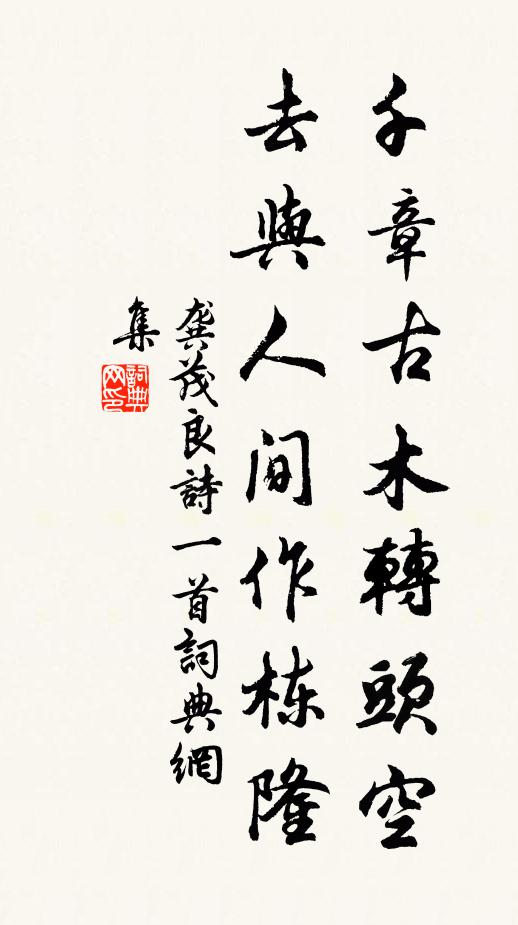 千章古木轉頭空
去與人间作栋隆
龔茂良詩一首詞典網
集
詞典网印